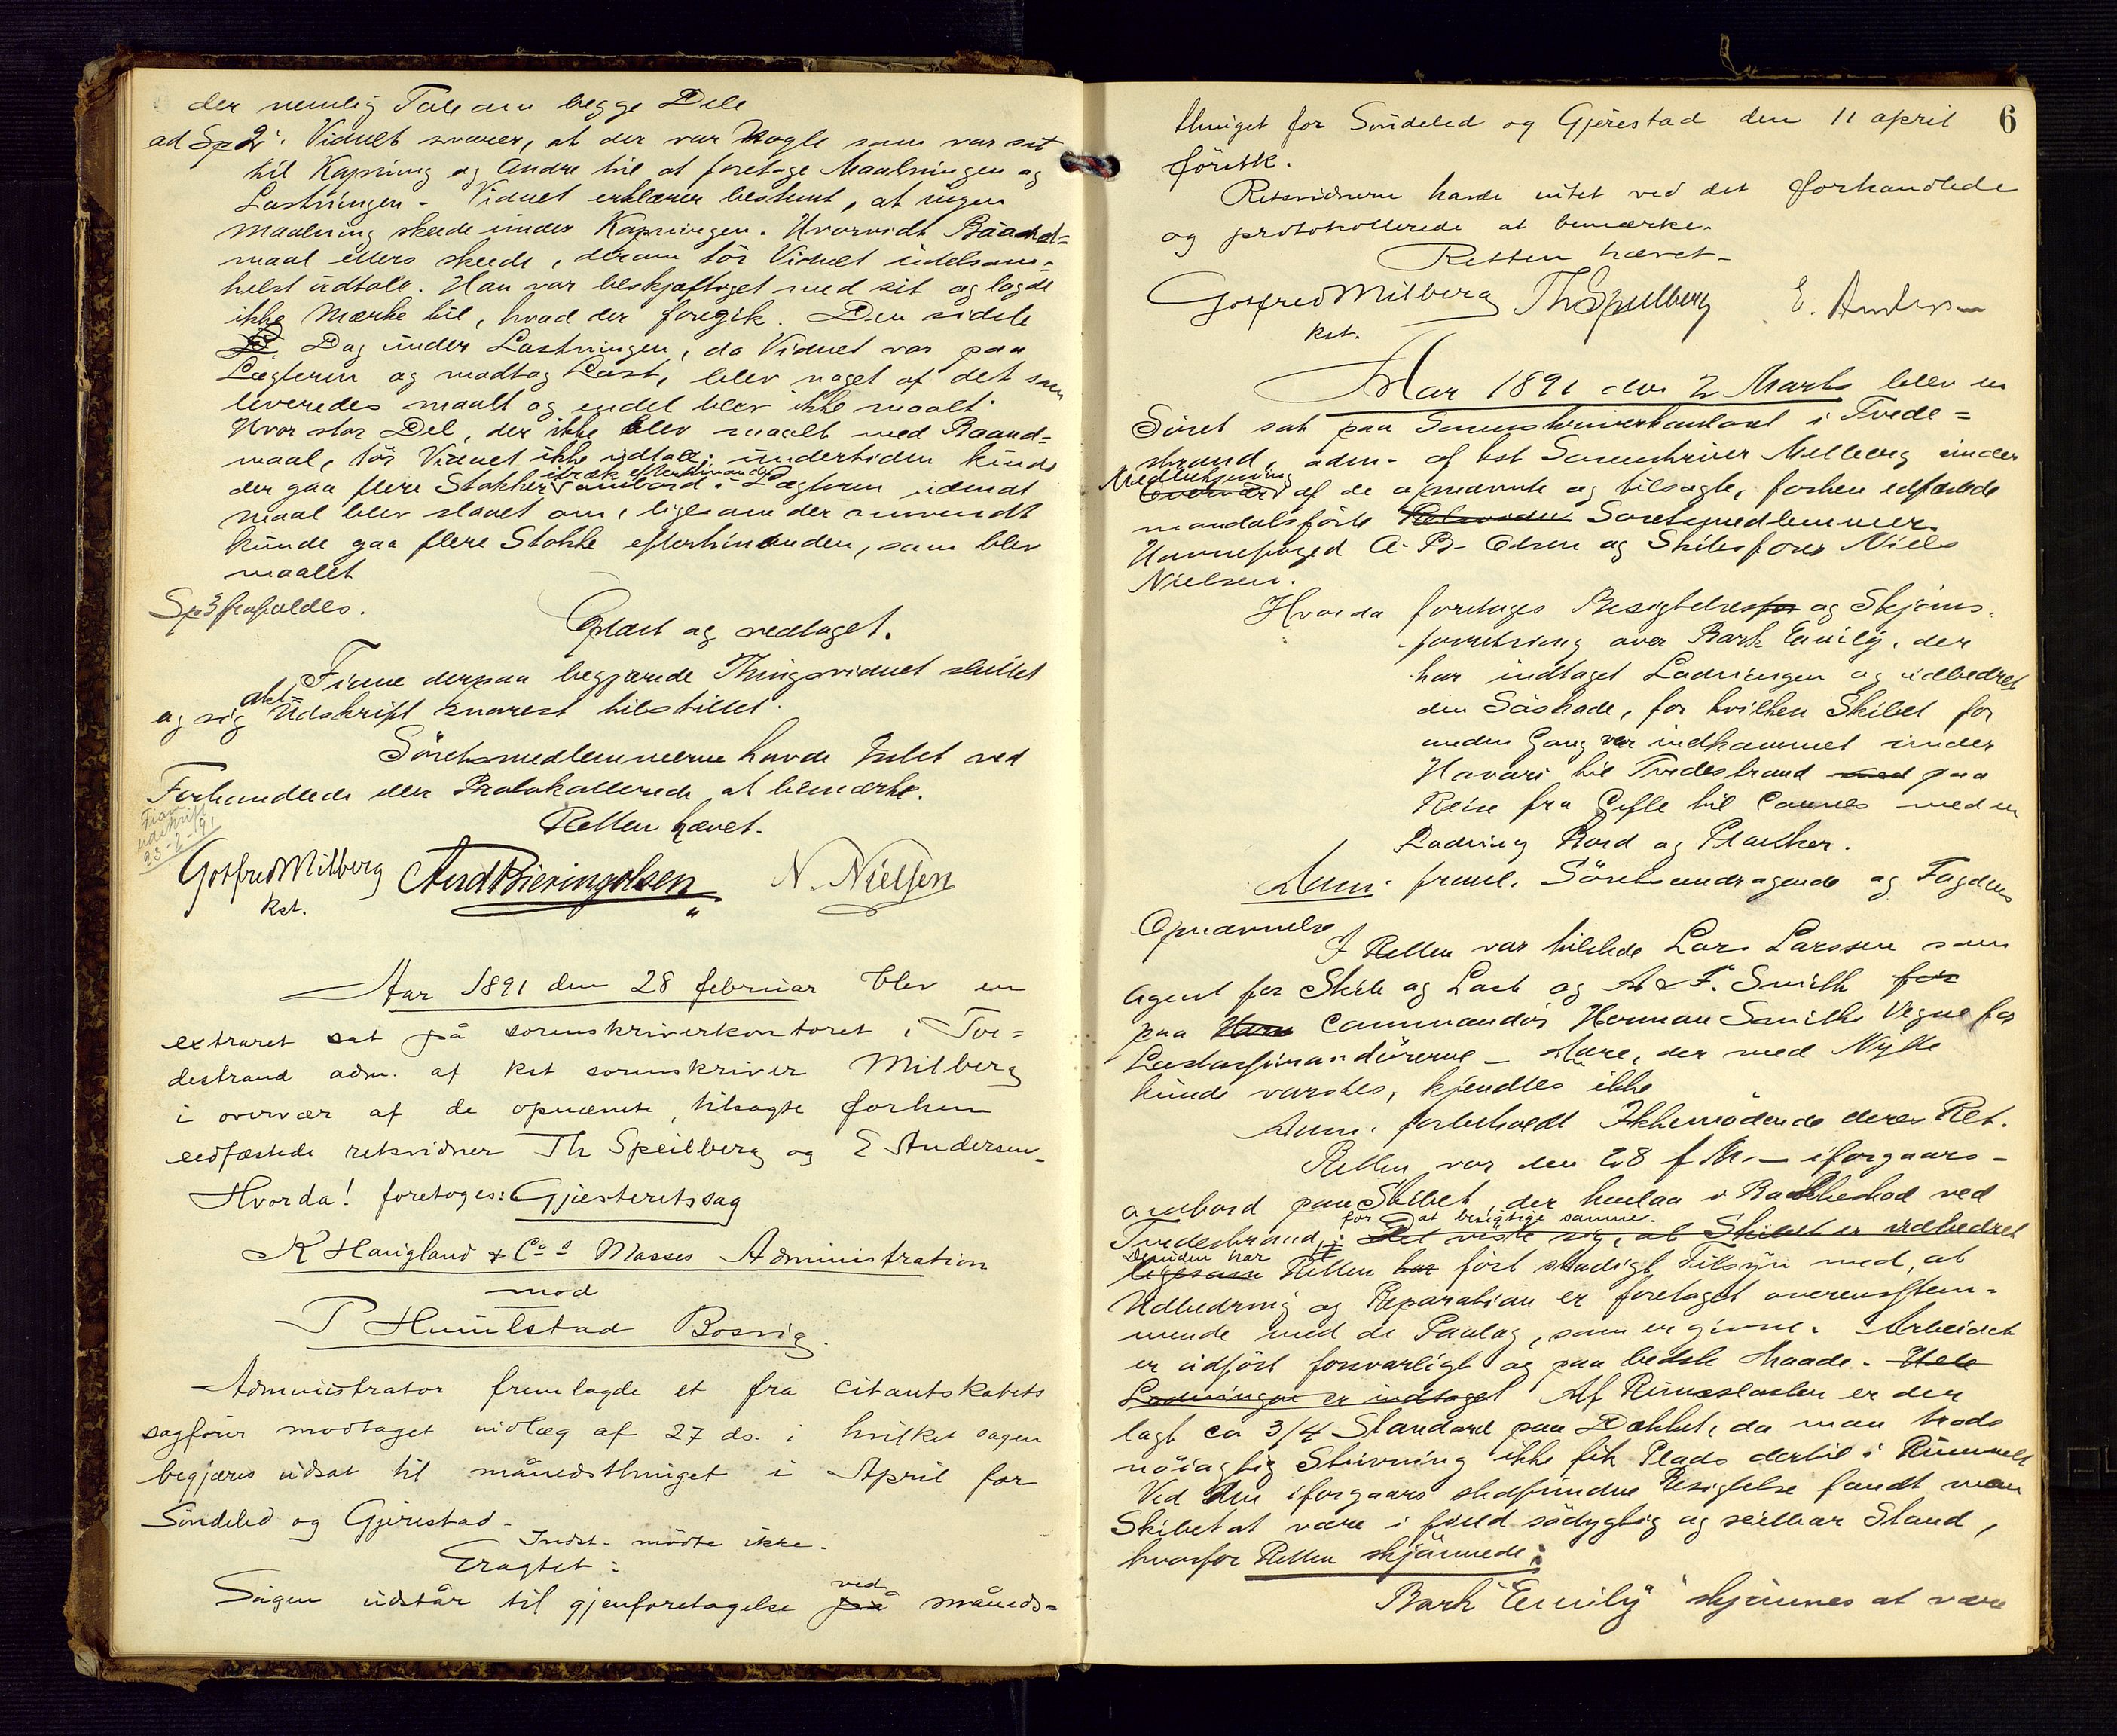 der nemlig Tale om begge Dele
ad Sp 2: Vidnet svarer, at der var Nogle som var sat
til Kapning og Andre til at foretage Maalningen og
Lastningen - Vidnet erklærer bestemt, at ingen
Maalning skede under Kapningen. Hvorvidt Baand=
maal ellers skede, derom tör Vidnet intetsom=
helst udtale. Han var beskjæftiget med sit og lagde
ikke Mærke til, hvad der foregik. Den sidste
Dag under Lastningen, da Vidnet var paa
Lægteren og modtog Last, blev noget af det som
leveredes maalt og endel blev ikke maalt.
Hvor stor Del, der ikke blev maalt med Baand=
maal, tör Vidnet ikke udtale; undertiden kunde
der gaa flere Stokker itræk efterhinanden ombord i Lægteren uden at
maal blev slaaet om, ligesom der omvendt
kunde gaa flere Stokke efterhinanden, som blev
maalet
Sp 3 frafaldes.
Oplæst og vedtaget.
Finne derpaa begjærede Thingsvidnet sluttet
og sig akt= Udskrift snarest tilstillet.
Söretsmedlemmerne havde Intet ved
Forhandlede eller Protokollerede at bemærke.
Retten hævet.
Udskrift
23-2-91
Gotfred Milberg And Bieringolsen N. Nielsen
kst.
Aar 1891 den 28 februar blev en
extraret sat på sorenskriverkontoret i Tve=
destrand adm. af kst sorenskriver Milberg
i overvær af de opnævnte, tilsagte forhen
eedfæstede retsvidner Th Speilberg og E Andersen-
Hvorda! foretoges: Gjesteretssag
K Haugland & Co s Masses Administration
mod
P Humlstad Bosvig.
Administrator fremlagde et fra citantskabets
sagförer modtaget indlæg af 27 ds. i hvilket sagen
begjæres udsat til månedsthinget i April for
Söndeled og Gjerestad.
Indst. mödte ikke.
Eragtet:
Sagen udstår til gjenforetagelse på ved måneds=
6
thinget for Söndeled og Gjerestad den 11 april
förstk.
Retsvidnerne havde intet ved det forhandlede
og protokollerede at bemærke.
Retten hævet-
Gotfred Milberg Th Speilberg E. Andersen
kst.
Aar 1891 den 2 Marts blev en
Söret sat paa Sorenskriverkontoret i Tvede=
strand, adm. af kst Sorenskriver Milberg under
Medbetjening Overvær af de opnævnte og tilsagte, forhen edfæstede
mandatsförte Retsvidner Söretsmedlemmer
Havnefoged A. B. Olsen og Skibsförer Niels
Nielsen.
Hvorda foretoges Besigtelses for og Skjöns-
forretning over Bark Emily, der
har indtaget Ladningen og udbedret
den Söskade, for hvilken Skibet for
anden Gang var indkommet under
Havari til Tvedestrand med paa
Reise fra Gefle til Cannes med en
Ladning Bord og Planker.
Adm. fremL. Söretsandragende og Fogdens
Opnævnelse
I Retten var tilstede Lars Larssen som
Agent for Skib og Last og A & F. Smith for
paa Herm Commandör Herman Smiths Vegne for
Lastassurandörerne - Andre, der med Nytte
kunde varsles, kjendtes ikke
Adm. forbeholdt Ikkemödende deres Ret.
Retten var den 28 f. M. - iforgaars -
ombord paa Skibet, der henlaa i Bakkeskod ved
Tvedestrand, for at besigtige samme. Det viste sig, at Skibet er udbedret
Desuden har ligesom Retten har fört stadigt Tilsyn med, at
Udbedring og Reparation er foretaget overensstem-
mende med de Paalæg, som er givne. Arbeidet
er udfört forsvarligt og paa bedste Maade. Hele
Ladningen er indtaget Af Rumslasten er der
lagt ca 3/4 Standard paa Dækket, da man trods
nöiagtig Stuvning ikke fik Plads dertil i Rummet
Ved den iforgaars stedfundne Besigtelse fandt man
Skibet at være i fuld södygtig og seilbar Stand,
hvorfor Retten skjönnede:
Bark "Emily" skjönnes at være